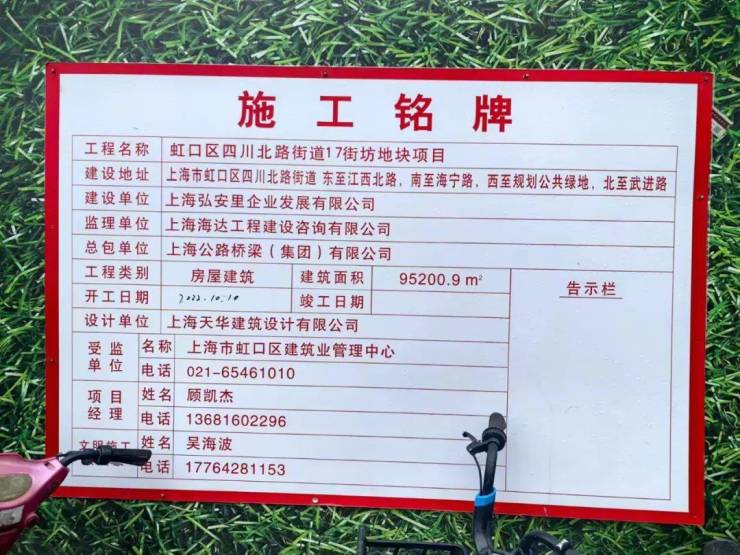 施工铭牌
工程名称 虹口区四川北路街道17街坊地块项目
建设地址 上海市虹口区四川北路街道 东至江西北路，南至海宁路，西至规划公共绿地，北至武进路
建设单位 上海弘安里企业发展有限公司
监理单位 上海海达工程建设咨询有限公司
总包单位 上海公路桥梁（集团）有限公司
工程类别 房屋建筑 建筑面积 95200.9 m² 告示栏
开工日期 2022.10.10 竣工日期
设计单位 上海天华建筑设计有限公司
受监单位 名称 上海市虹口区建筑业管理中心
电话 021-65461010
项目经理 姓名 顾凯杰
电话 13681602296
文明施工 姓名 吴海波
电话 17764281153